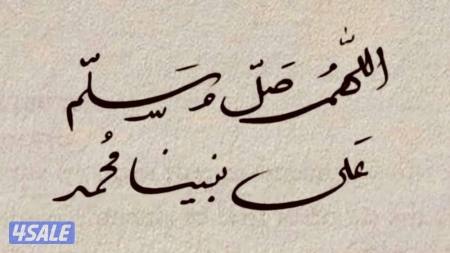 اللّٰهُمَّ صَلِّ وَسَلِّم
عَلى نبينا مُحمد
4SALE